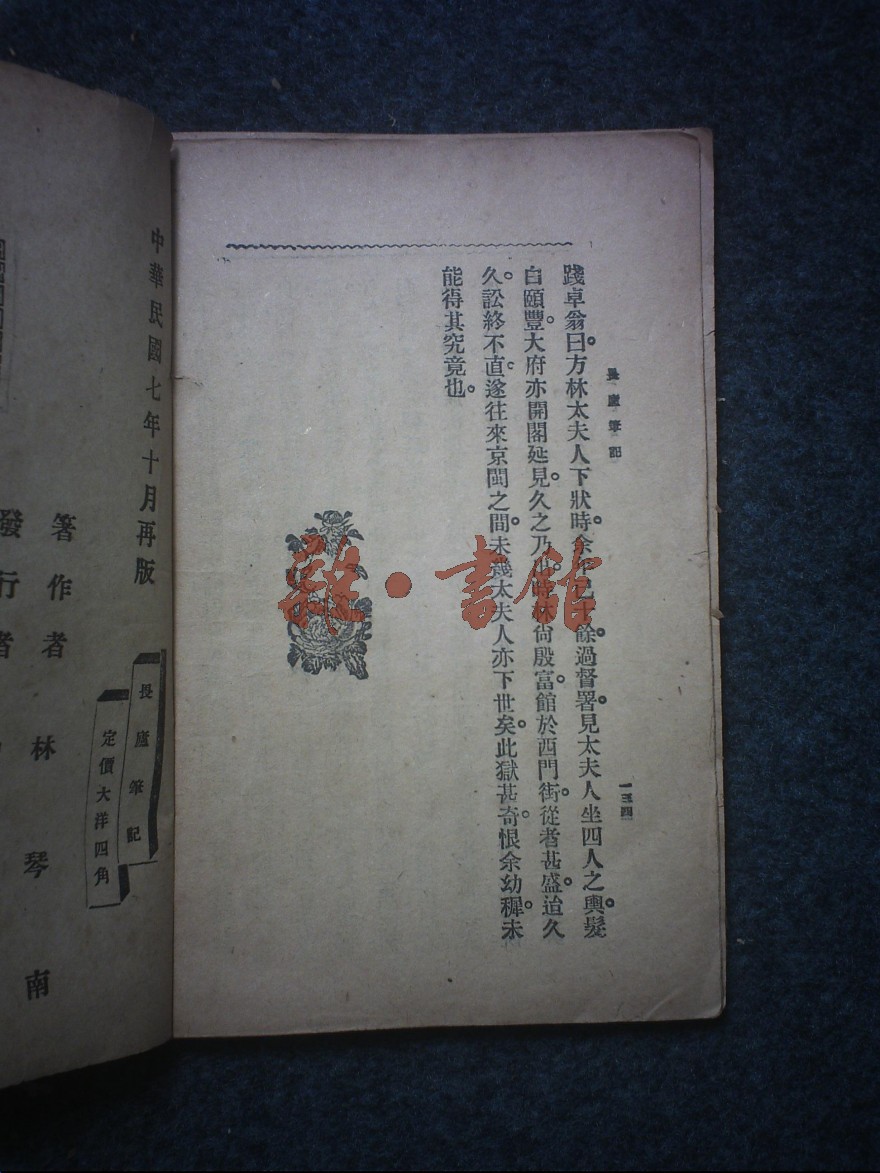 畏廬筆記
一三四
踐卓翁曰。方林太夫人下狀時。余年已十餘。過督署。見太夫人坐四人之輿。髮
白頤豐。大府亦開閣延見。久之乃出。時林尙殷富。館於西門街。從者甚盛。迨久
久。訟終不直。遂往來京閩之間。未幾太夫人亦下世矣。此獄甚奇。恨余幼穉。未
能得其究竟也。
雜·書館
中華民國七年十月再版
畏廬筆記
定價大洋四角
著作者 林琴南
發行者